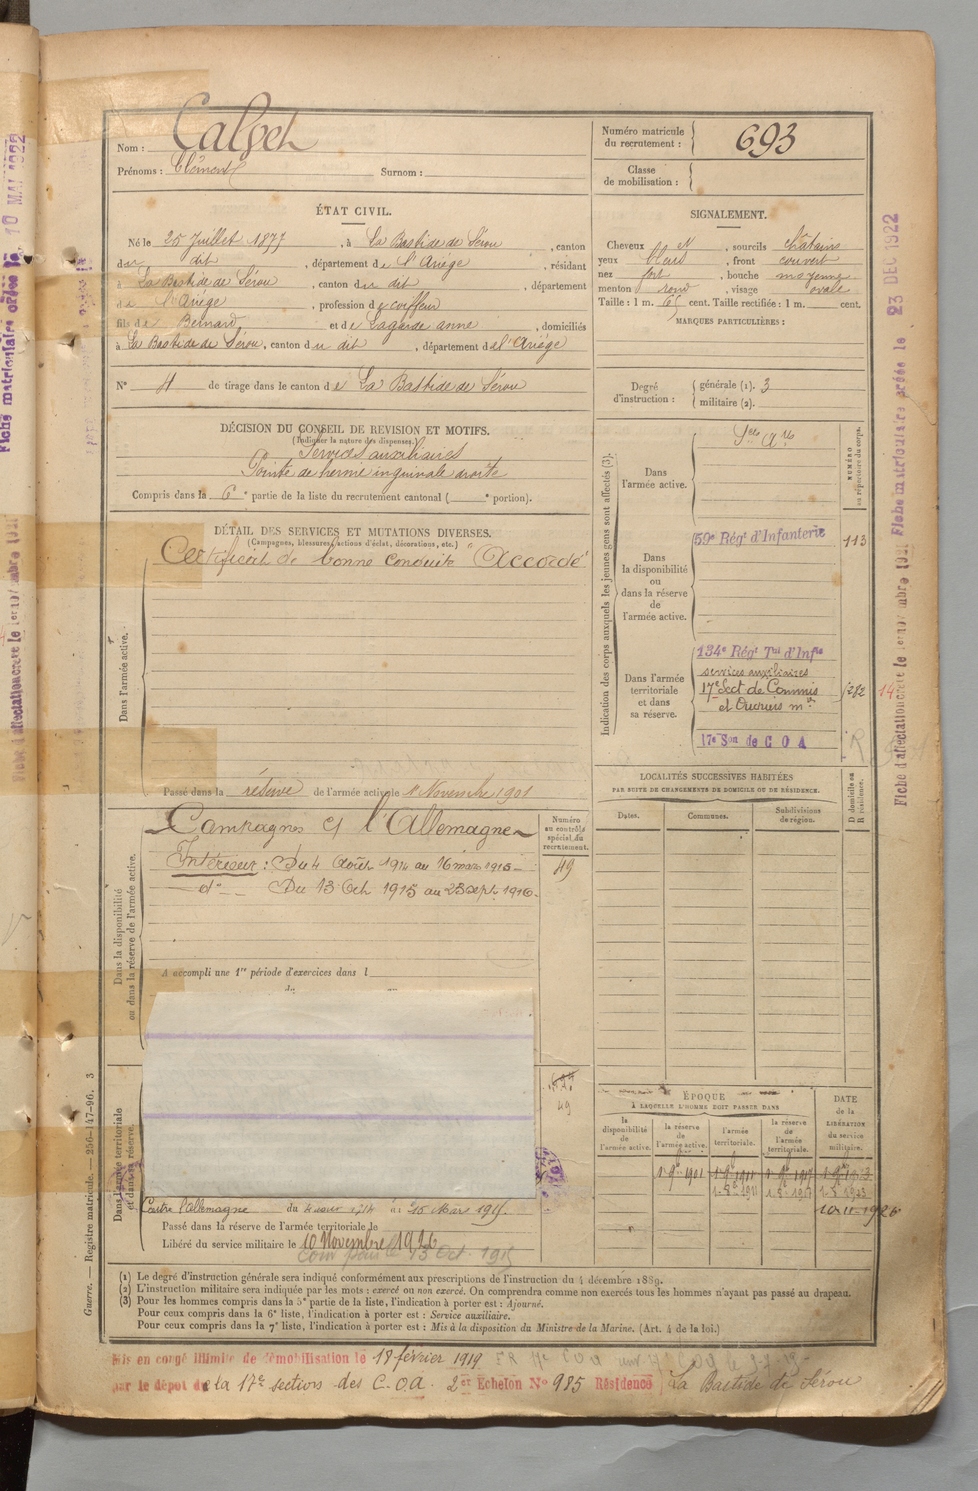 Nom : Calvet
Prénoms : Clément Surnom :
Numéro matricule du recrutement : 693
Classe de mobilisation :
ÉTAT CIVIL.
Né le 25 Juillet 1877, à La Bastide de Sérou, canton
du dit, département de l'Ariège, résidant
à La Bastide de Sérou, canton du dit, département
de l'Ariège, profession de coiffeur
fils de Bernard et de Lagarde anne, domiciliés
à La Bastide de Sérou, canton du dit, département de l'Ariège
N° 4 de tirage dans le canton de La Bastide de Sérou
SIGNALEMENT.
Cheveux N, sourcils châtains
yeux bleus, front couvert
nez fort, bouche moyenne
menton rond, visage ovale
Taille : 1 m. 65 cent. Taille rectifiée : 1 m. cent.
MARQUES PARTICULIÈRES :
Degré d'instruction : générale (1). 3
militaire (2).
DÉCISION DU CONSEIL DE REVISION ET MOTIFS.
(Indiquer la nature des dispenses.)
Services auxiliaires
Pointe de hernie inguinale droite
Compris dans la 6e partie de la liste du recrutement cantonal ( e portion).
DÉTAIL DES SERVICES ET MUTATIONS DIVERSES.
(Campagnes, blessures, actions d'éclat, décorations, etc.)
Certificat de bonne conduite "Accordé"
Dans l'armée active.
Passé dans la réserve de l'armée active le 1er Novembre 1901
Campagnes c/ l'Allemagne
Intérieur : Du 4 Août 1914 au 16 mars 1915
d° Du 13 Oct 1915 au 23 sept 1916
Numéro au contrôle spécial du recrutement.
49
Dans la disponibilité ou dans la réserve de l'armée active.
A accompli une 1re période d'exercices dans l
Dans l'armée territoriale et dans sa réserve.
49
Contre l'Allemagne du 4 août 1914 au 16 Mars 1915
Passé dans la réserve de l'armée territoriale le
Libéré du service militaire le 10 Novembre 1926
Indication des corps auxquels les jeunes gens sont affectés (3).
NUMÉRO au répertoire du corps.
Dans l'armée active.
Dans la disponibilité ou dans la réserve de l'armée active.
59e Régt d'Infanterie 113
Dans l'armée territoriale et dans sa réserve.
134e Régt Tal d'Infie
services auxiliaires
17e Sect de Commis
et Ouvriers m.
17e Son de C O A
LOCALITÉS SUCCESSIVES HABITÉES
PAR SUITE DE CHANGEMENTS DE DOMICILE OU DE RÉSIDENCE.
Dates. Communes. Subdivisions de région.
D domicile ou R résidence.
ÉPOQUE
À LAQUELLE L'HOMME DOIT PASSER DANS
la disponibilité de l'armée active. la réserve de l'armée active. l'armée territoriale. la réserve de l'armée territoriale.
DATE de la LIBÉRATION du service militaire.
10-11-1926
(1) Le degré d'instruction générale sera indiqué conformément aux prescriptions de l'instruction du 4 décembre 1889.
(2) L'instruction militaire sera indiquée par les mots : exercé ou non exercé. On comprendra comme non exercés tous les hommes n'ayant pas passé au drapeau.
(3) Pour les hommes compris dans la 5e partie de la liste, l'indication à porter est : Ajourné.
Pour ceux compris dans la 6e liste, l'indication à porter est : Service auxiliaire.
Pour ceux compris dans la 7e liste, l'indication à porter est : Mis à la disposition du Ministre de la Marine. (Art. 4 de la loi.)
Mis en congé illimité de démobilisation le 18 février 1919
par le dépôt de la 17e section des C.O.A. 2er Echelon N° 985 Résidence La Bastide de Sérou
Guerre. — Registre matricule. — 256-147-96. 3
Fiche matriculaire créée le 23 DEC 1922
Fiche matriculaire créée le 10 MAI 1922